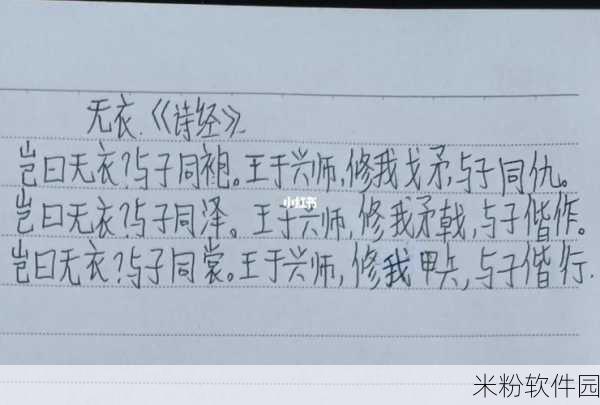 无衣.《诗经》.
岂曰无衣?与子同袍。王于兴师,修我戈矛,与子同仇。
小红书
岂曰无衣?与子同泽。王于兴师,修我矛戟,与子偕作。
岂曰无衣?与子同裳。王于兴师,修我甲兵,与子偕行.
米粉软件园